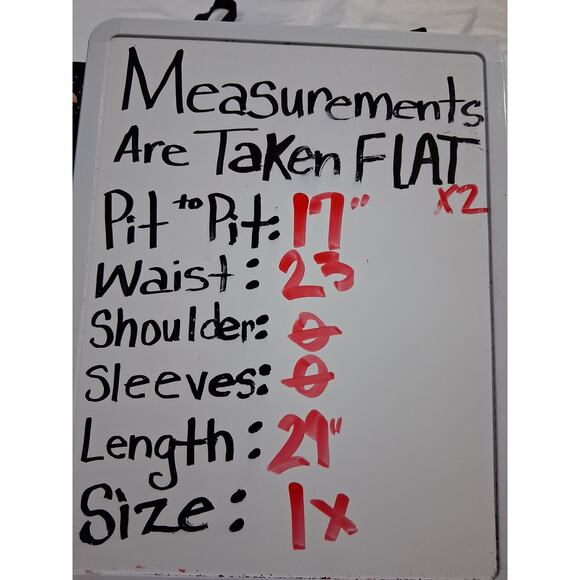 Measurements
Are Taken FLAT
x2
Pit to Pit: 17"
Waist: 23
Shoulder: 0
Sleeves: 0
Length: 29"
Size: 1x